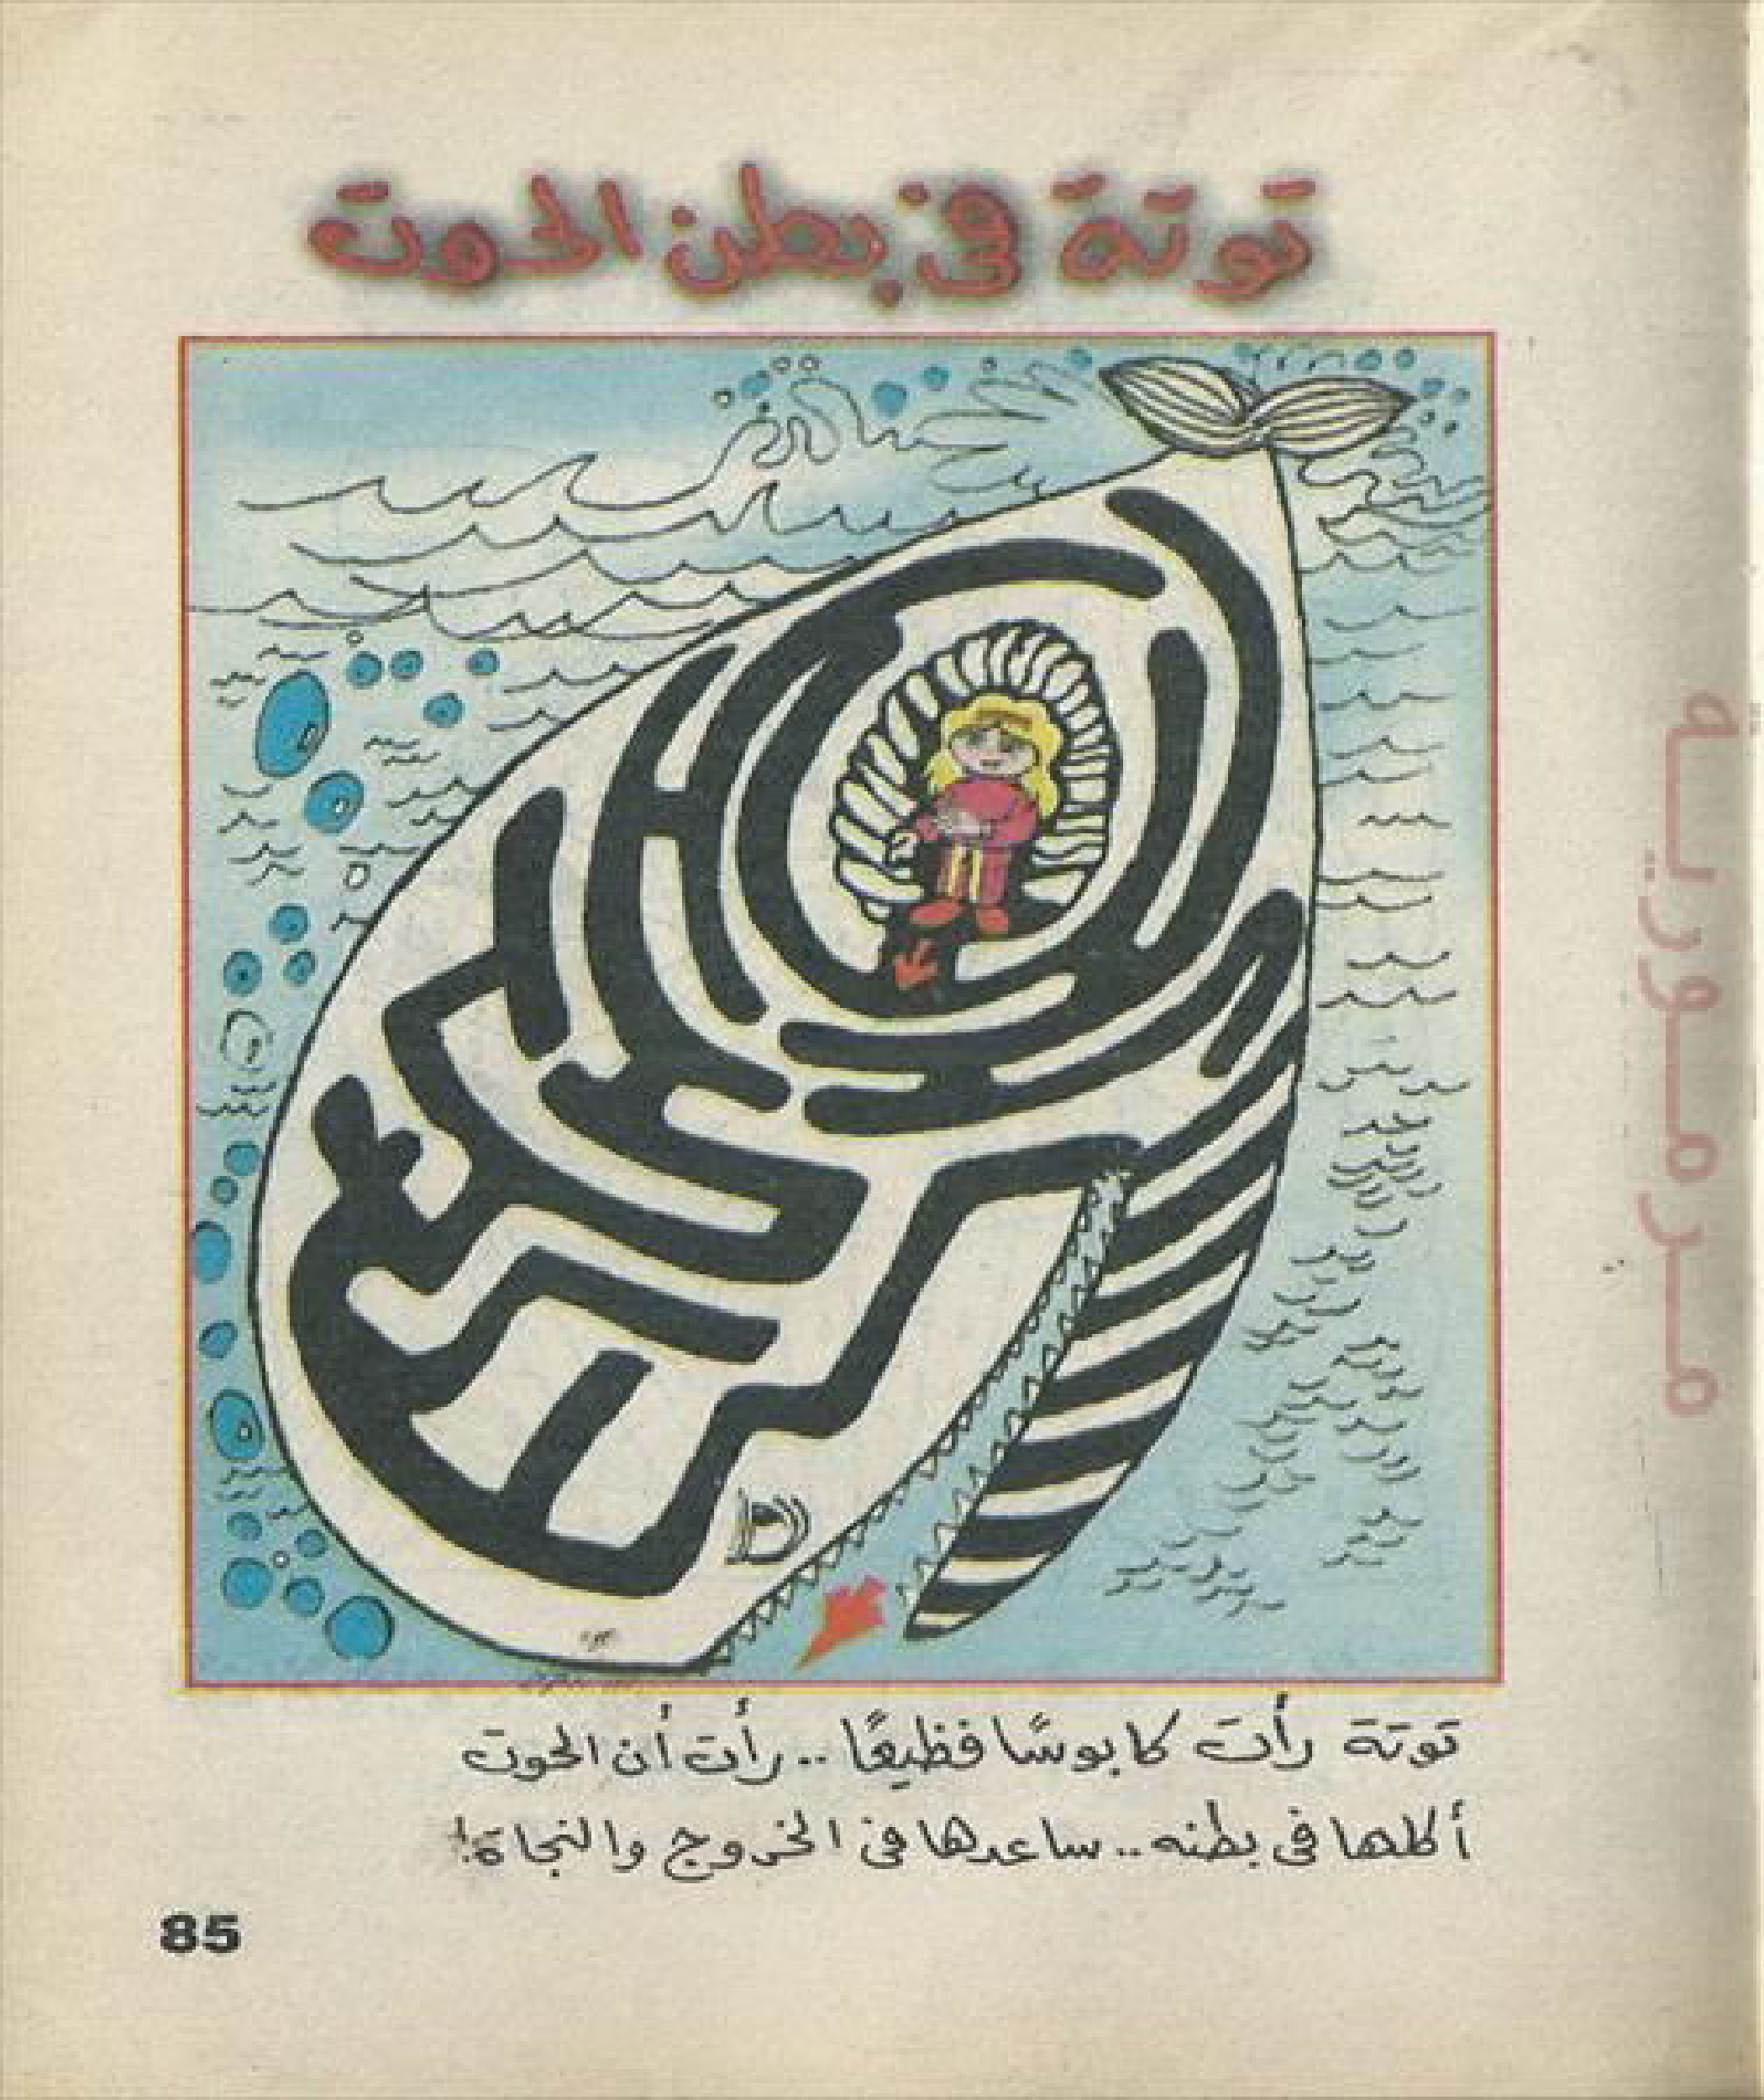 توتة في بطن الحوت
توتة رأت كابوسًا فظيعًا .. رأت أن الحوت
أكلها في بطنه .. ساعدها في الخروج والنجاة!
85
مرمورية